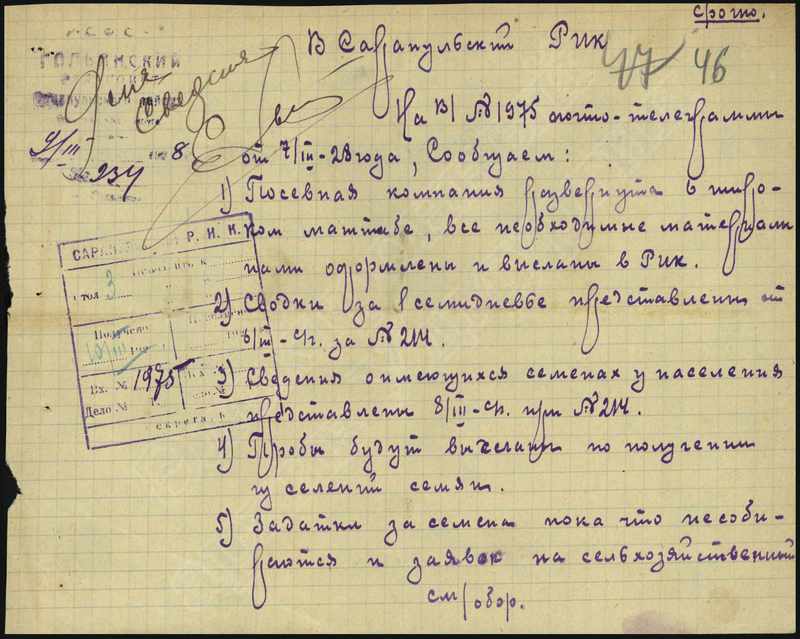 Срочно.
В Сарапульский Рик
77 46
ГОЛЬЯНСКИЙ
Для
Сведения
9/III 8
№ 234
На В/ № 1975 фото-телеграммы
от 7/III-28 года, Сообщаем:
1) Посевная компания развернута в широ-
ком маштабе, все необходимые материали
нами оформлены и высланы в Рик.
2) Сводки за 1 семидневье представлены от
6/III-с/г. за № 214.
3) Сведения о имеющихся семенах у населения
представлены 8/III-с/г. при № 214.
4) Пробы будут высланы по получении
из селений семян.
5) Задатки за семена пока что несоби-
раются и заявок на сельхозяйственный
см/ обор.
САРАП Р. И. К.
стол 3
Получено
10/III
Вх. № 1975
Дело №
Секретарь